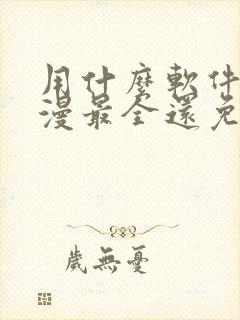 用什麼軟件
漫最全還免
歲無憂